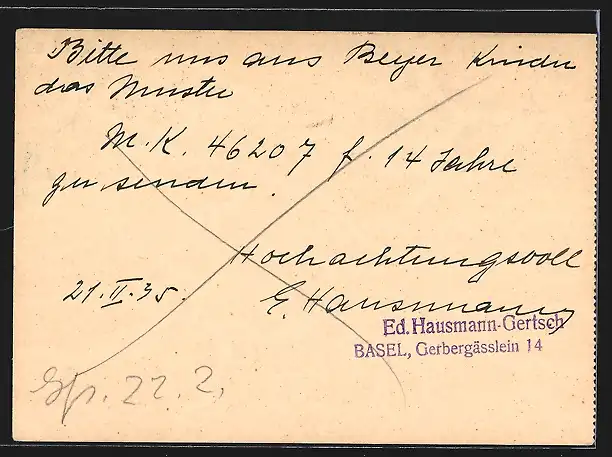 Bitte uns aus Beyer Kinder
das Muster
M.K. 46207 f. 14 Jahre
zu senden.
Hochachtungsvoll
21.II.35.
E. Hausmann
Ed. Hausmann-Gertsch
BASEL, Gerbergässlein 14
22.2.